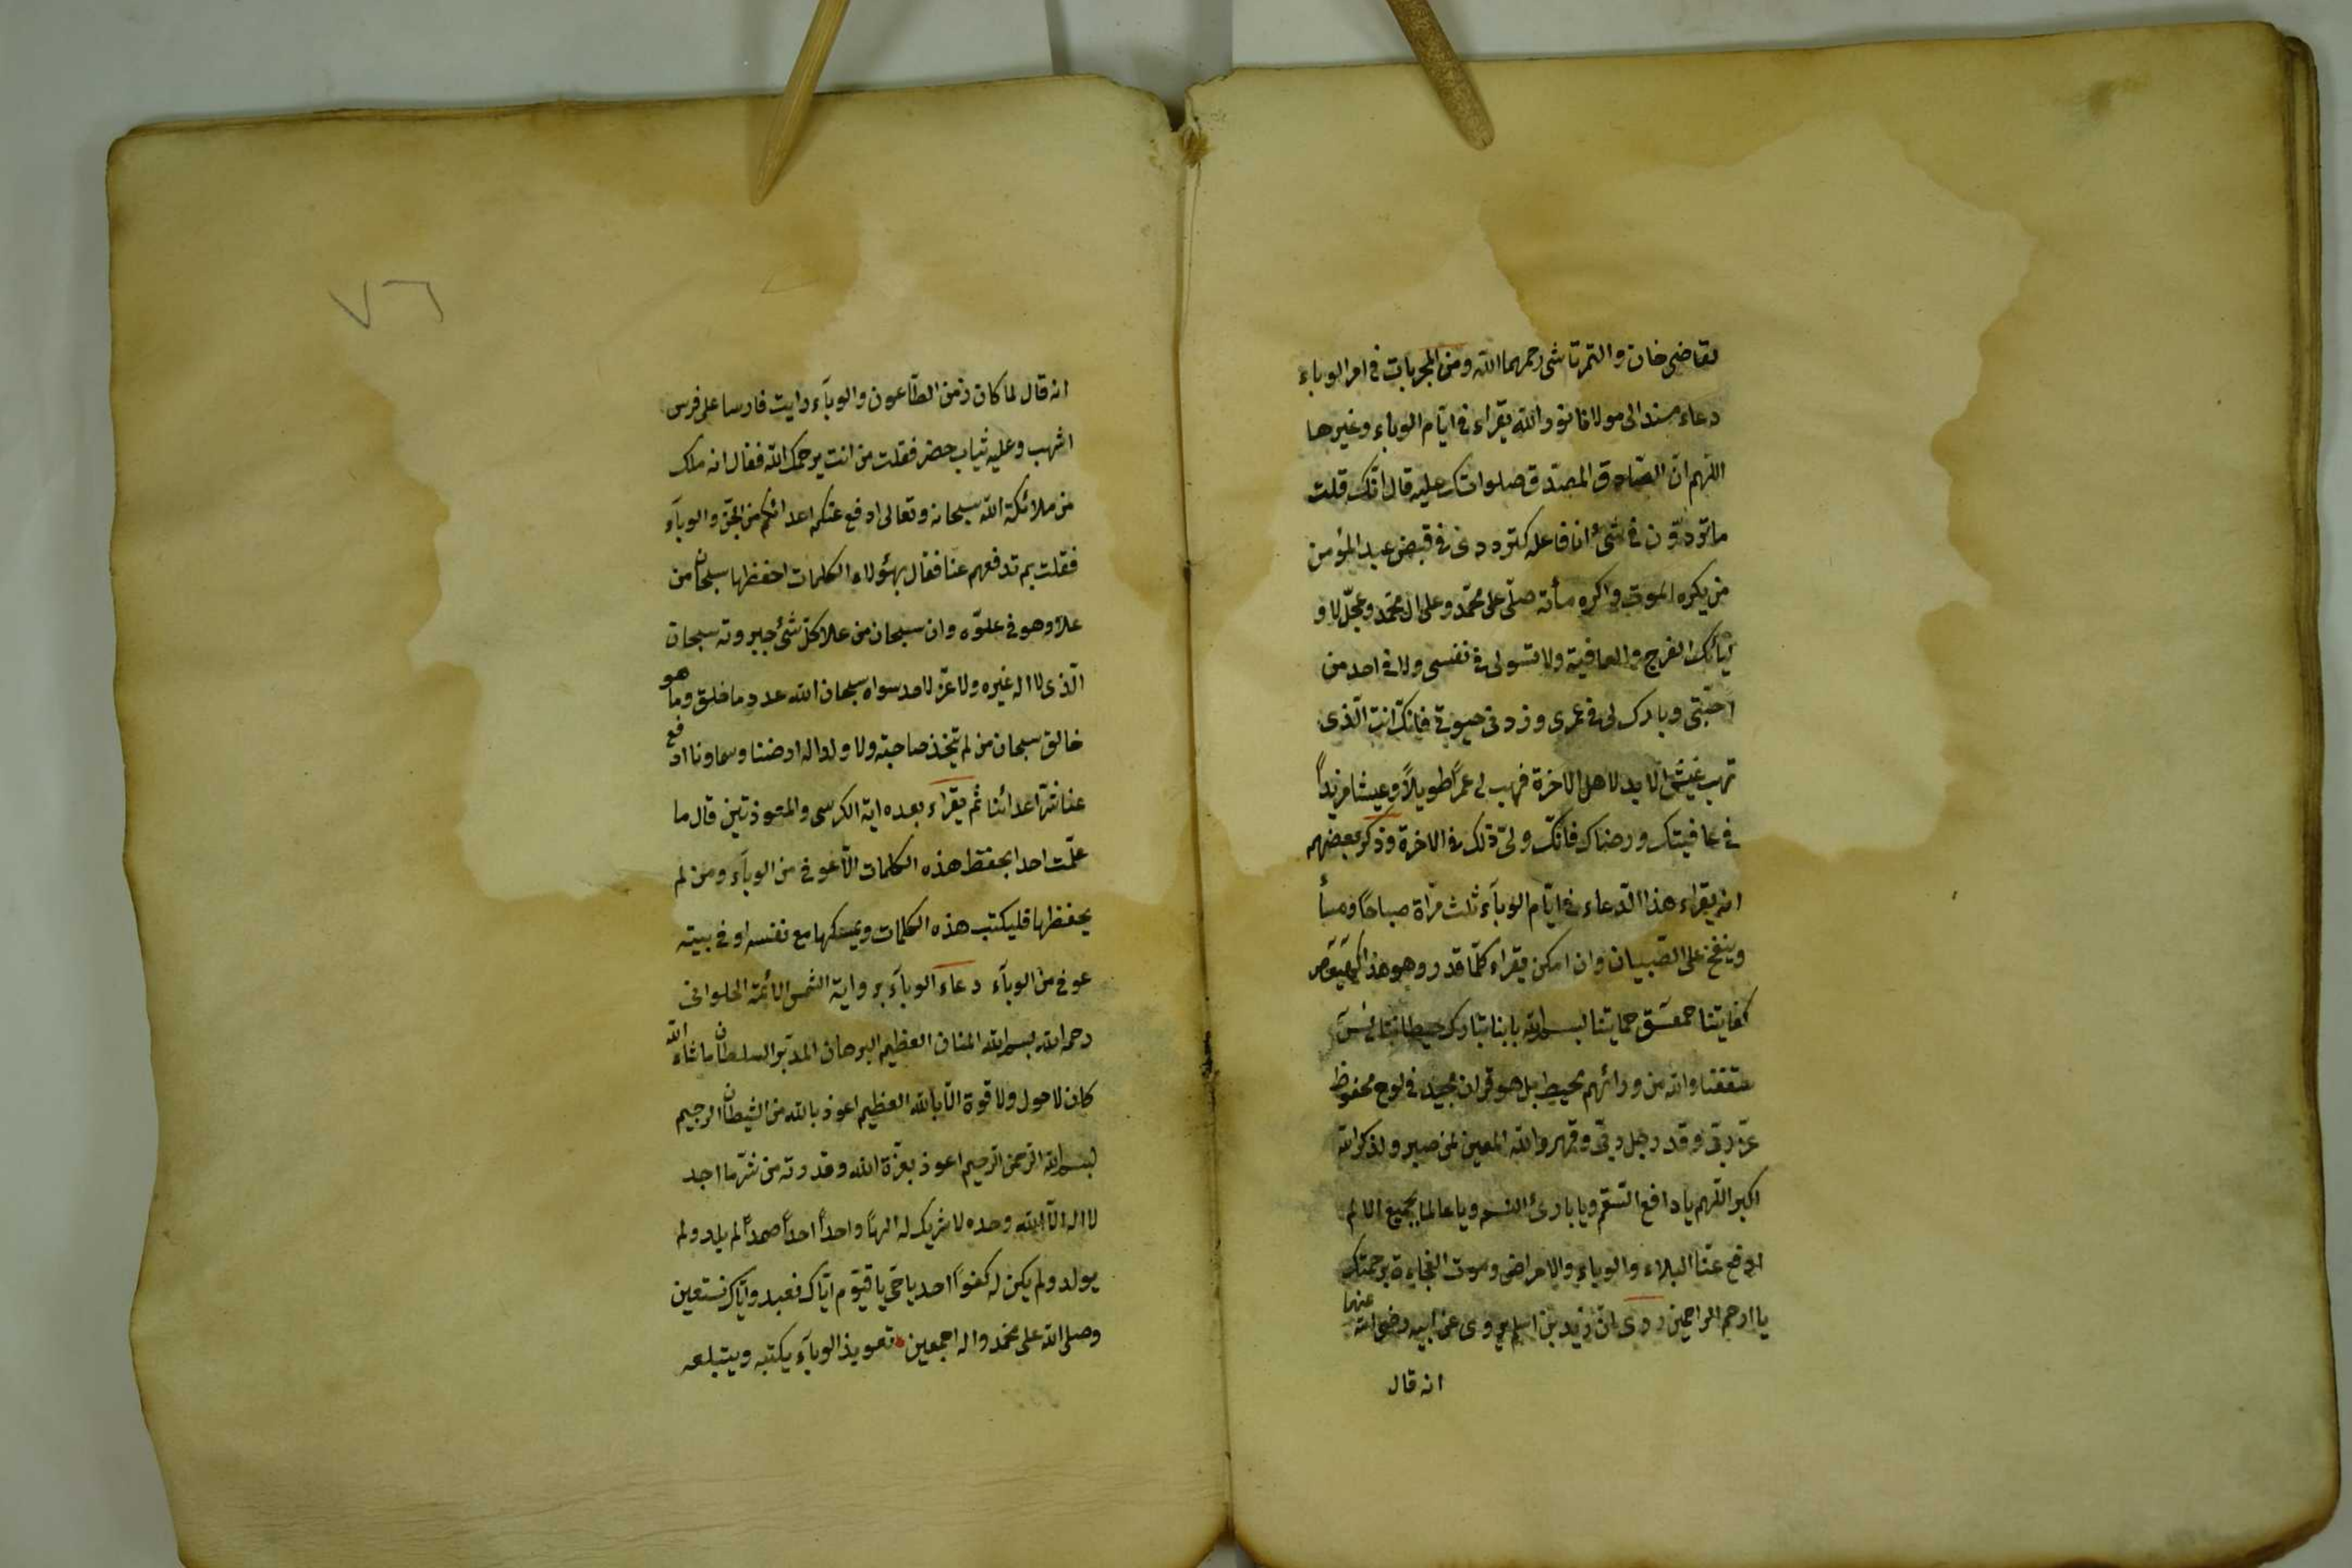 لقاضى خان والتمرتاشى رحمهما الله ومن المجربات فى امر الوباء
دعاء مسند الى مولانا نور الله يقراء فى ايام الوباء وغيرها
اللهم ان الصادق المصدق صلواتك عليه قال انك قلت
ما ترددت فى شئ انا فاعله كترددى فى قبض عبد المؤمن
من يكره الموت واكره مسأته صلى على محمد وعلى ال محمد وعجل لاو
ليائك الفرج والعافية ولا تسولى فى نفسى ولا فى احد من
احبتى وبارك لى فى عمرى وزد فى حيوتى فانك انت الذى
تهب لاهل الاخرة فهب لى عمراً طويلاً وعيشا مزيداً
فى عافيتك ورضاك فانك ولى ذلك فى الاخرة وذكر بعضهم
انه يقراء هذا الدعاء فى ايام الوبآء ثلث مراة صباحاً ومسأ
وينفخ على الصبيان وان امكن يقراء كلما قدر وهو هذا كهيعص
كفايتنا حمعسق حمايتنا بسم الله بابنا تبارك حيطاننا يس
سقفنا والله من ورائهم محيط بل هو قران مجيد فى لوح محفوظ
عز ربى وقدر جل ربى وقهر والله المعين لمن صبر ولذكر الله
اكبر اللهم يا دافع السقم ويا بارئ النسم ويا عالما بجميع الالم
ادفع عنا البلاء والوباء والامراض وموت الفجاءة برحمتك
يا ارحم الراحمين روى ان زيد بن اسلم يروى عن ابيه رضى الله عنهما
انه قال
٧٦
انه قال لما كان زمن الطاعون والوبآء رايت فارسا على فرس
اشهب وعليه ثياب خضر فقلت من انت يرحمك الله فقال انه ملك
من ملائكة الله سبحانه وتعالى ادفع عنكم اعدائكم من الجن والوبآء
فقلت بم تدفعهم عنا فقال بهؤلاء الكلمات احفظها سبحان من
علا وهو فى علوه وان سبحان من علا كل شئ جبروته سبحان
الذى لا اله غيره ولا عز لاحد سواه سبحان الله عدد ما خلق وما هو
خالق سبحان من لم يتخذ صاحبة ولا ولدا له ارضنا وسماونا ادفع
عنا شر اعدائنا ثم يقراء بعده اية الكرسى والمتعوذتين قال ما
علمت احدا يحفظ هذه الكلمات الا عوفى من الوبآء ومن لم
يحفظها فليكتب هذه الكلمات ويمسكها مع نفسه او فى بيته
عوفى من الوبآء دعاء الوبآء برواية الشمس الائمة الحلوانى
رحمه الله بسم الله المنان العظيم البرهان المدبر السلطان ما شاء الله
كان لا حول ولا قوة الا بالله العظيم اعوذ بالله من الشيطان الرجيم
بسم الله الرحمن الرحيم اعوذ بعزة الله وقدرته من شر ما اجد
لا اله الا الله وحده لا شريك له الهاً واحداً احداً صمداً لم يلد ولم
يولد ولم يكن له كفواً احد يا حى يا قيوم اياك نعبد واياك نستعين
وصلى الله على محمد واله اجمعين تعويذ الوبآء يكتبه ويبتلعه